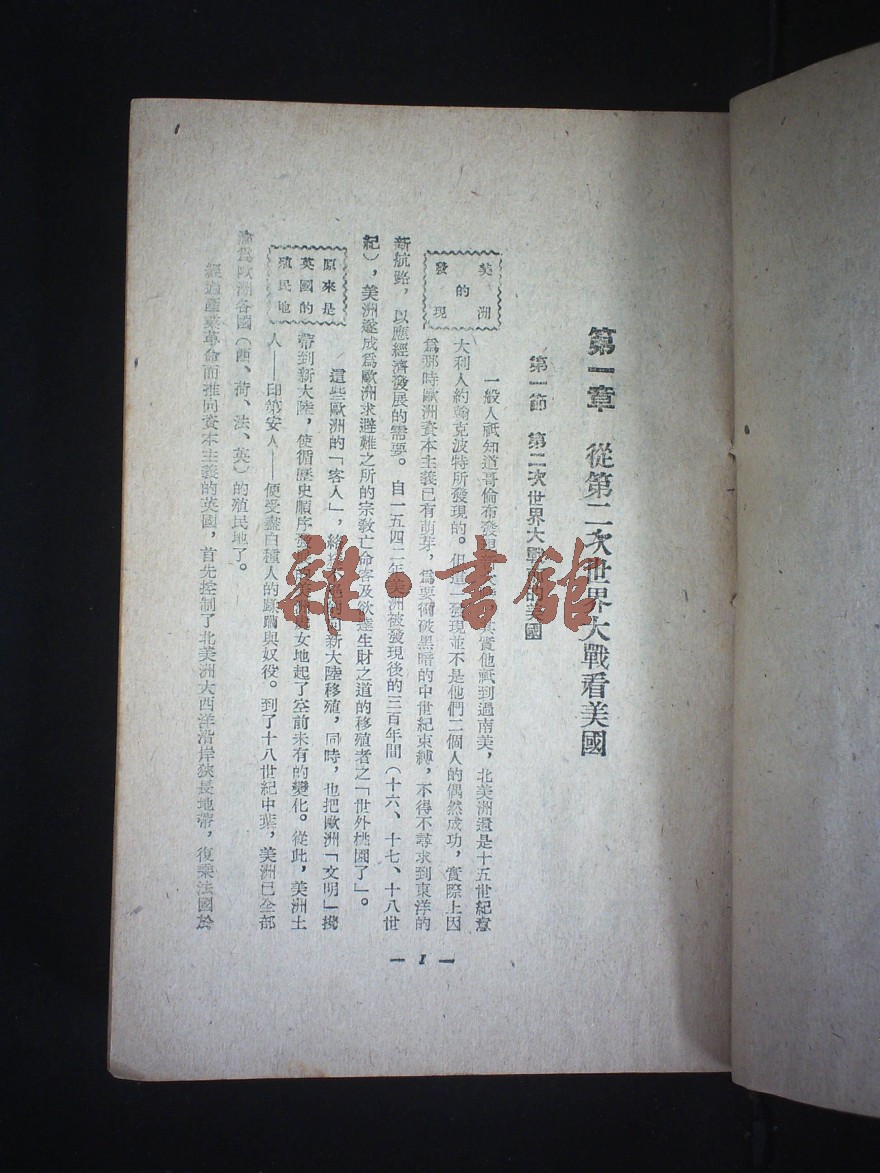 第一章 從第二次世界大戰看美國
第一節 第二次世界大戰 的美國
美洲的發現
一般人祇知道哥倫布發 其實他祇到過南美，北美洲還是十五世紀意
大利人約翰克波特所發現的。但這一發現並不是他們二個人的偶然成功，實際上因
爲那時歐洲資本主義已有萌芽，爲要衝破黑暗的中世紀束縛，不得不尋求到東洋的
新航路，以應經濟發展的需要。自一五四二年美洲被發現後的三百年間（十六、十七、十八世
紀），美洲遂成爲歐洲求避難之所的宗敎亡命客及欲達生財之道的移殖者之「世外桃園了」。
原來是英國的殖民地
這些歐洲的「客人」， 向新大陸移殖，同時，也把歐洲「文明」
帶到新大陸，使循歷史順序 處女地起了空前未有的變化。從此，美洲土
人——印第安人——便受盡白種人的 與奴役。到了十八世紀中葉，美洲已全部
淪爲歐洲各國（西、荷、法、英）的殖民地了。
經過產業革命而推向資本主義的英國，首先控制了北美洲大西洋沿岸狹長地帶，復乘法國於
— 1 —
雜·書館